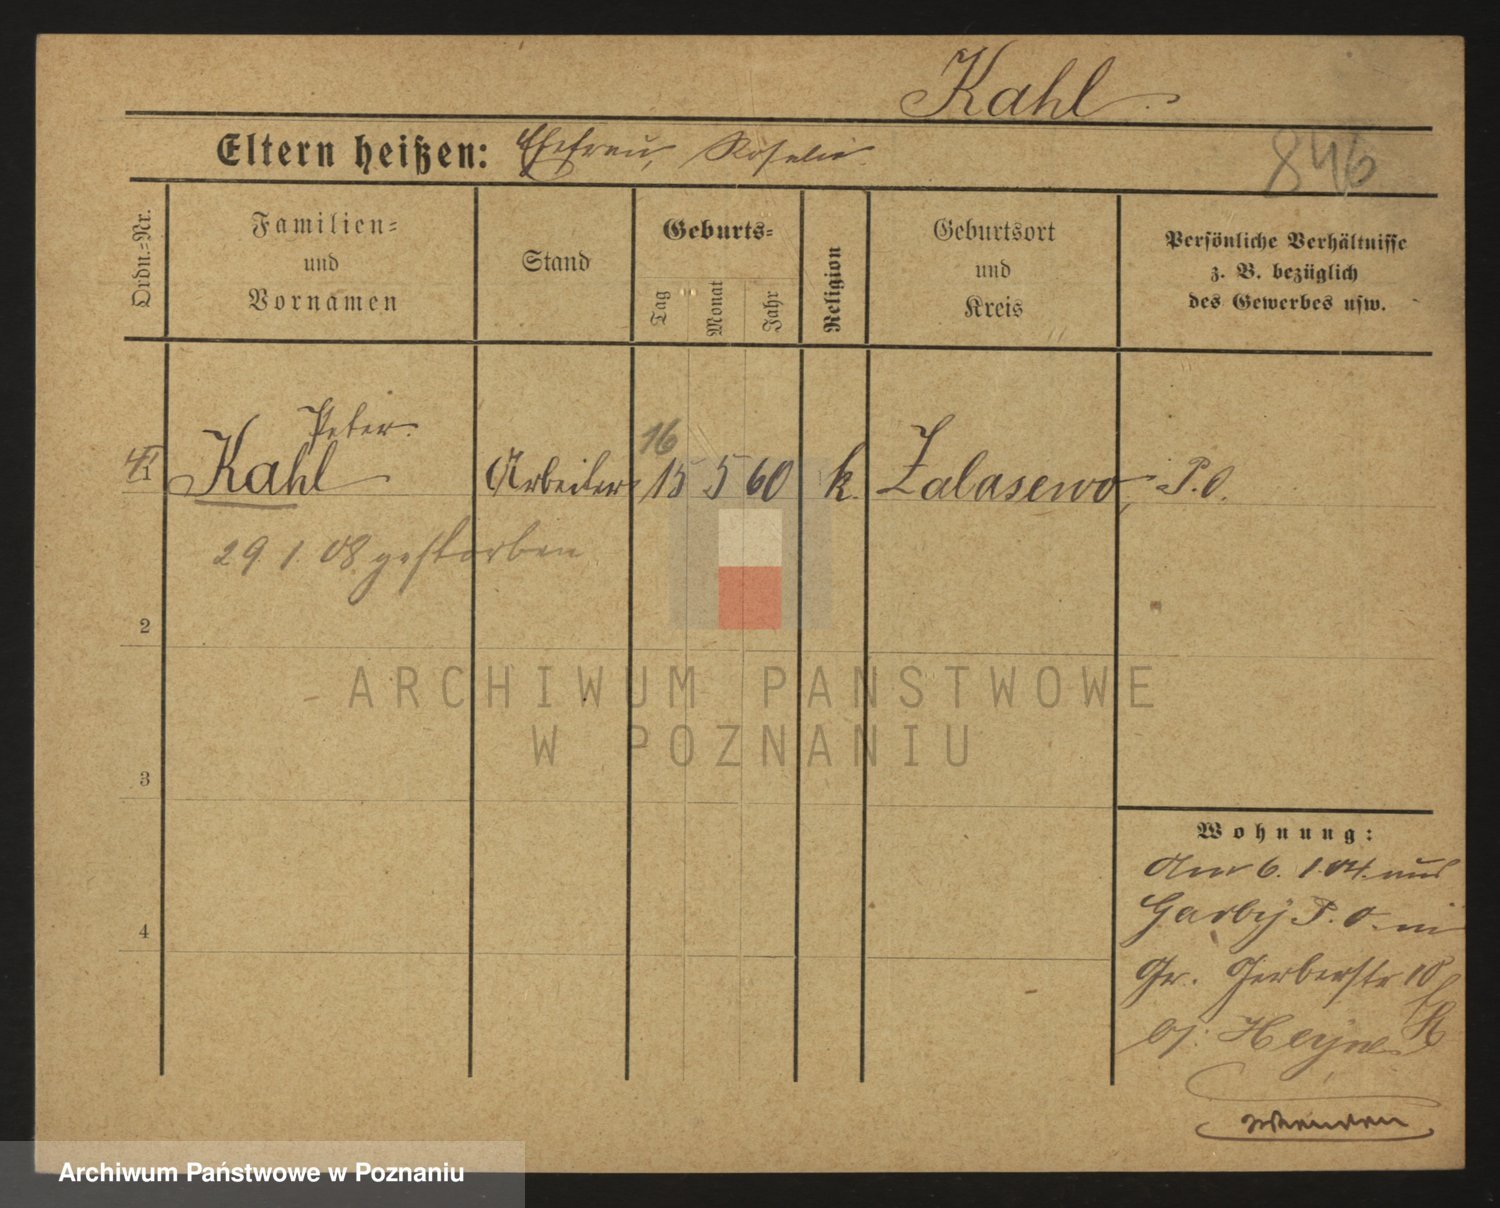 Kahl
Eltern heißen: Ehefrau, Rosalie
846
Ordn.=Nr.
Familien=
und
Vornamen
Stand
Geburts=
Tag
Monat
Jahr
Religion
Geburtsort
und
Kreis
Persönliche Verhältnisse
z. B. bezüglich
des Gewerbes usw.
Peter
16
Kahl Arbeiter 15 5 60 k. Zalasewo, P.O.
29. 1. 08 gestorben
2
3
4
Wohnung:
Am 6. 1. 04. aus
Garby P. O. in
Gr. Gerberstr 10
bj. Heyne
wenden
ARCHIWUM PAŃSTWOWE
W POZNANIU
Archiwum Państwowe w Poznaniu